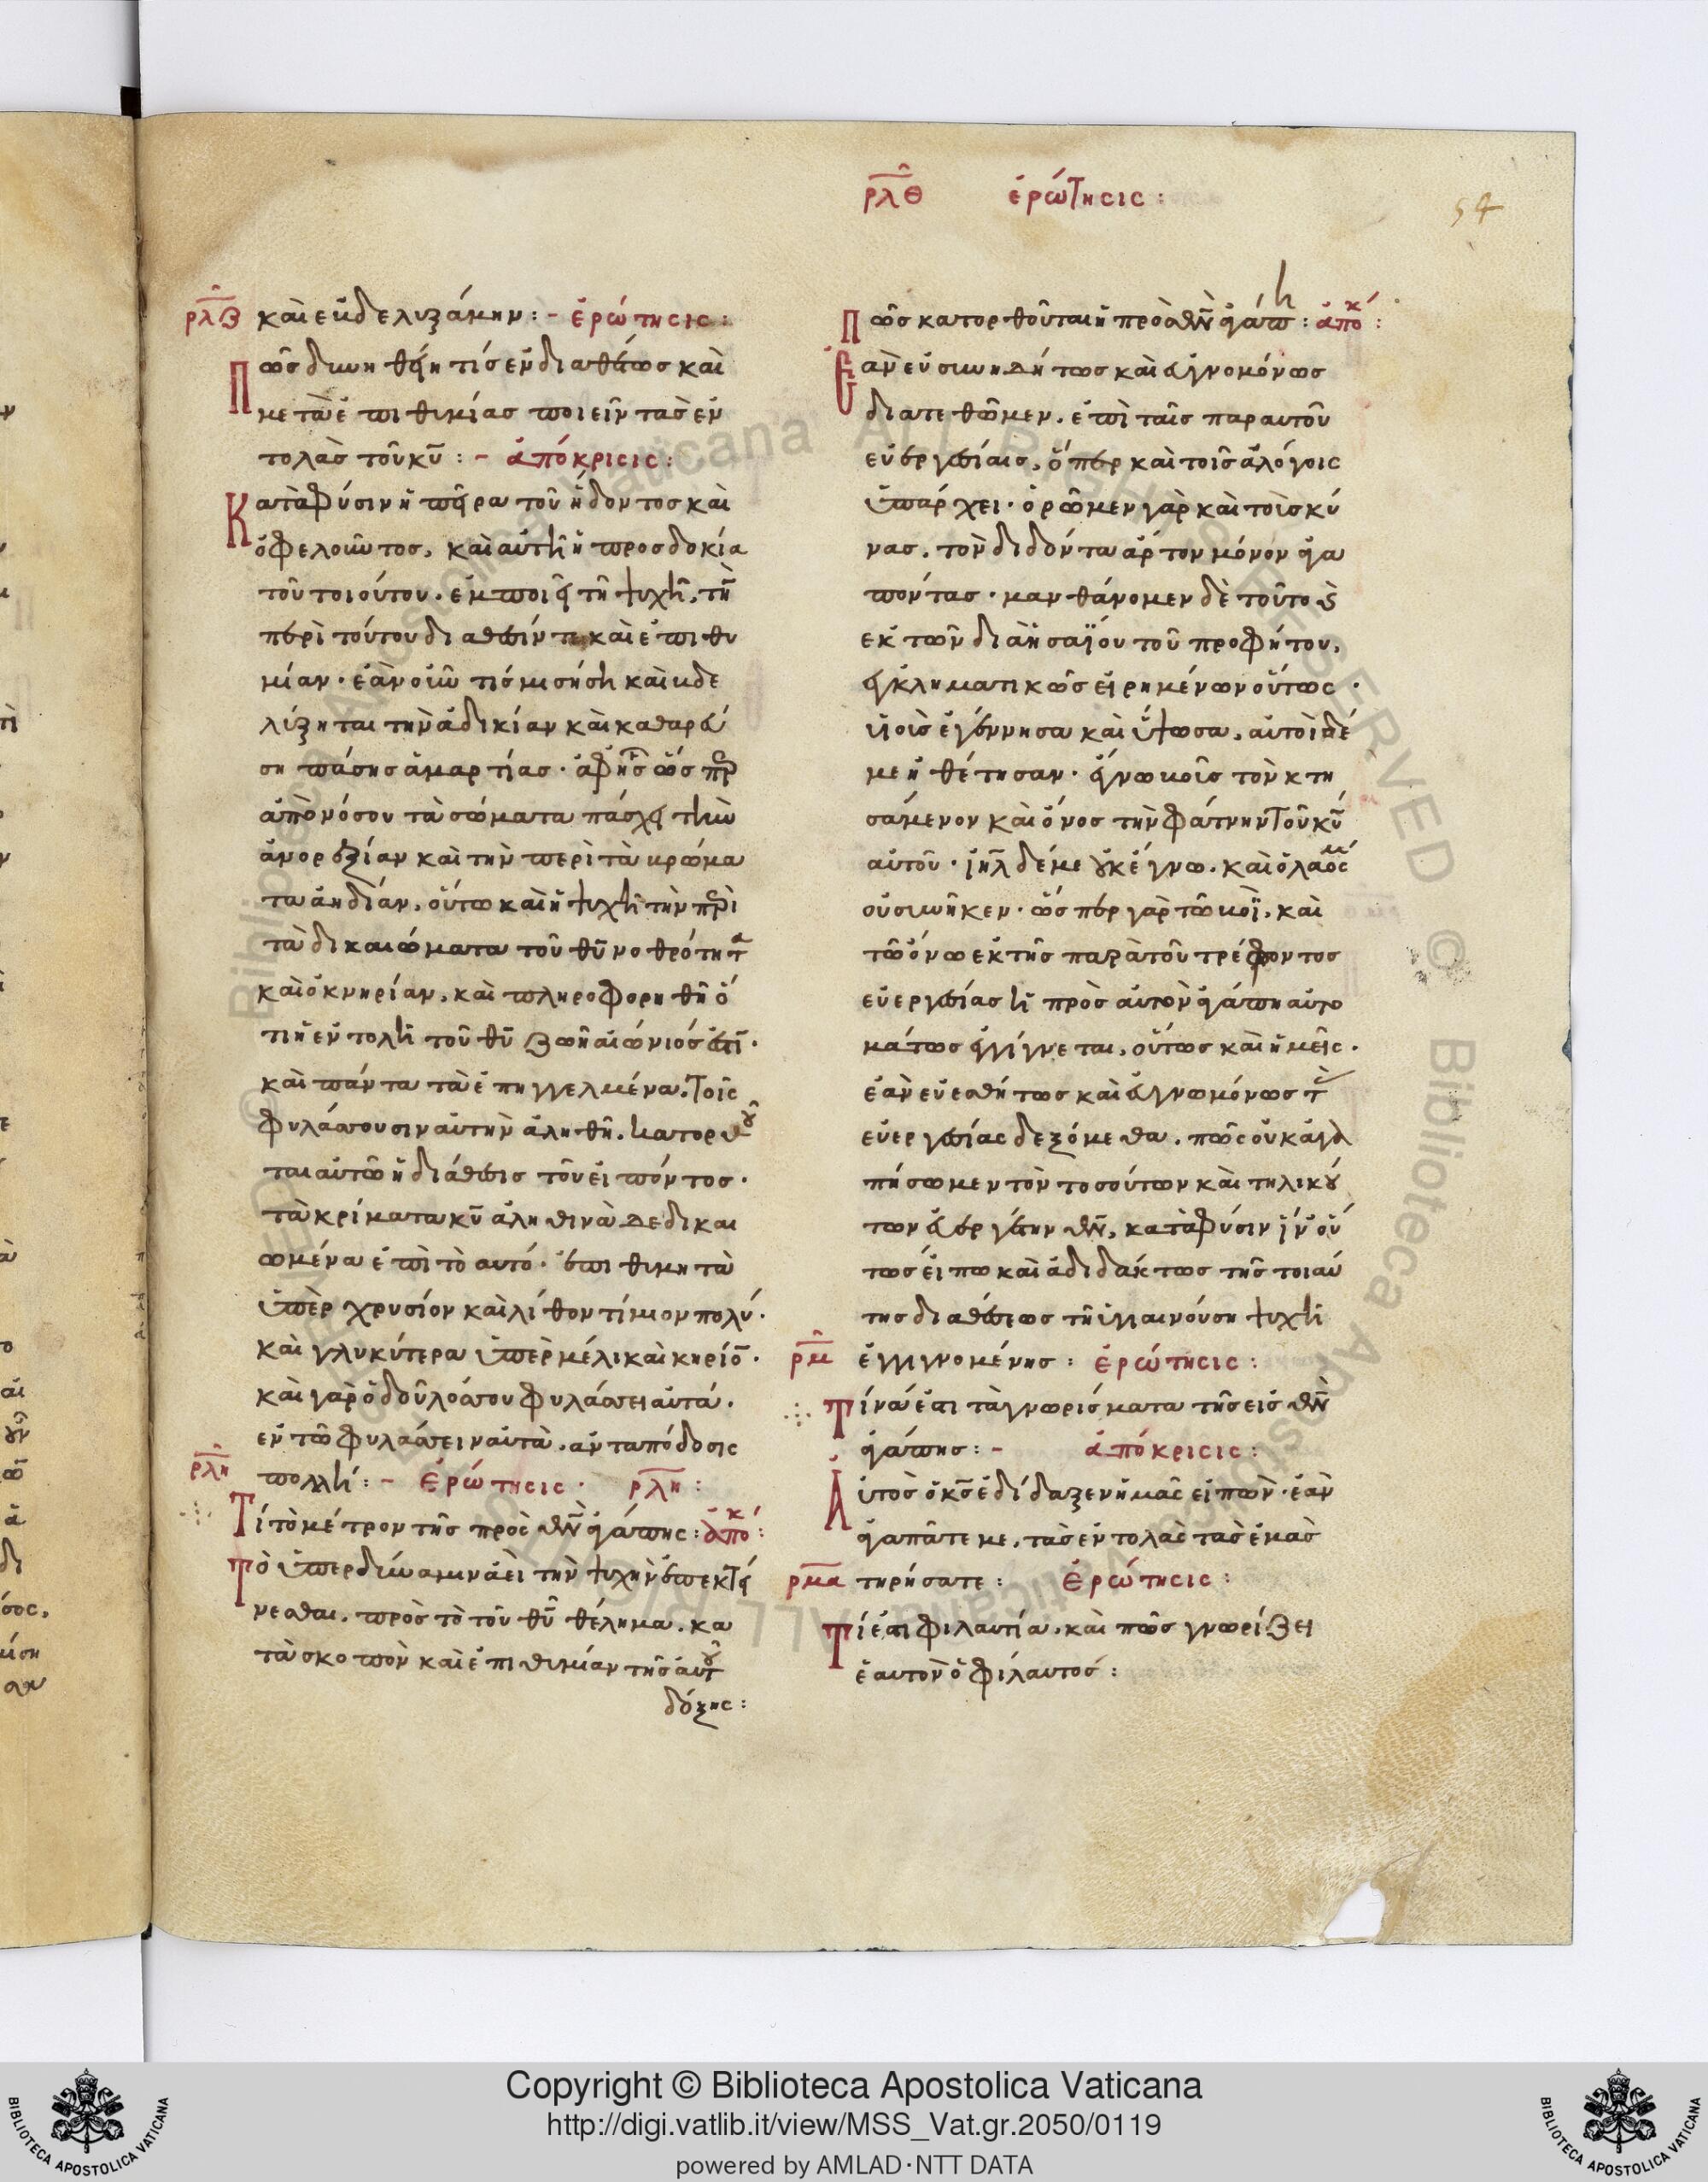 ρλζ καὶ ἐβδελυξάμην :- ἐρώτησις :
Πῶς δυνηθείη τίς ἐν διαθέσεως καὶ
μετὰ ἐπιθυμίας ποιεῖν τὰς ἐν
τολὰς τοῦ κυ̅ :- ἀπόκρισις :
Κατὰ φύσιν ἡ πεῖρα τοῦ ἥδοντος καὶ
ὀφελοῦντος, καὶ αὐτὴ ἡ προσδοκία
τοῦ τοιούτου. ἐμποιεῖ τῆ ψυχῆ, τὴν
περὶ τούτου διάθεσίν καὶ ἐπιθυ
μίαν. ἐὰν οὖν τίς μισήση καὶ βδε
λύξηται τὴν ἀδικίαν καὶ καθαρεύ
ση πάσης ἁμαρτίας. ἀφ' ἧς ὥσπερ
ἀπὸ νόσου τὰ σώματα πάσχει τὴν
ἀνορεξίαν καὶ τὴν περὶ τὰ βρώμα
τα ἀηδίαν, οὕτω καὶ ἡ ψυχὴ τὴν περὶ
τὰ δικαιώματα τοῦ θυ̅ νοθρότητα
καὶ ὀκνηρίαν, καὶ πληροφορηθῆ ὅ
τι ἡ ἐντολὴ τοῦ θυ̅ ζωὴ αἰώνιός ἐστί.
καὶ πάντα τὰ ἐπηγγελμένα τοῖς
φυλάσσουσιν αὐτὴν ἀληθῆ. κατορθοῦ
ται αὐτῶ ἡ διάθεσις τοῦ εἰπόντος.
τὰ κρίματα κυ̅ ἀληθινὰ δεδικαι
ωμένα ἐπὶ τὸ αυτό. ἐπιθυμητὰ
ὑπὲρ χρυσίον καὶ λίθον τίμιον πολύ.
καὶ γλυκύτερα ὑπὲρ μέλι καὶ κηρίο̅.
καὶ γὰρ ὁ δοῦλός σου φυλάσσει αὐτά.
ἐν τῶ φυλάσσειν αὐτὰ. ἀνταπόδοσις
ρλη πολλὴ :- Ἐρώτησις · ρλη :
Τί τὸ μέτρον τῆς πρὸς θν̅ ἀγάπης : ἀπόκ :
Τὸ ὑπερ δύναμιν ἀεὶ τὴν ψυχὴν ἐπεκτεί
νεσθαι. πρὸς τὸ τοῦ θυ̅ θέλημα. κα
τὰ σκοπὸν καὶ ἐπιθυμίαν τῆς αὐτοῦ
δόξης :
ρλθ ἐρώτησις :
54
Πῶς κατορθοῦται ἡ πρὸς θν̅ ἀγάπη : ἀπόκ :
Ἐὰν εὐσυνηδήτως καὶ εὐγνομόνως
διατεθῶμεν. ἐπὶ ταῖς παρ αυτοῦ
εὐεργεσίαις, ὅπερ καὶ τοῖς ἀλόγοις
ὑπάρχει. ὁρῶμεν γὰρ καὶ τοὶς κύ
νας. τὸν διδόντα ἄρτον μόνον ἀγα
πόντας. μανθάνομεν δὲ τοῦτο ϗ
ἐκ τῶν διὰ ἡσαΐου τοῦ προφήτου,
ἐγκληματικῶς εἰρημένων οὕτως ·
υἱοὶς ἐγέννησα καὶ ὕψωσα, αὐτοὶ δέ
με ἠθέτησαν. ἔγνω βοῦς τὸν κτη
σάμενον καὶ ὄνος τὴν φάτνην τοῦ κυ̅
αὐτοῦ. ιηλ δέ με οὐκ ἔγνω. καὶ ὁ λαός μ
οὐ συνῆκεν. ὥσπερ γὰρ τῶ βοῒ, καὶ
τῶ ὄνω ἐκ τῆς παρὰ τοῦ τρέφοντος
εὐεργεσίας ἡ πρὸς αὐτὸν ἀγάπη αὐτο
μάτως ἐγγίγνεται, οὕτως καὶ ἡμεῖς.
ἐὰν εὐεσθήτως καὶ εὐγνωμόνως τὰς
εὐεργεσίας δεξόμεθα. πῶς οὐκ ἀγα
πήσωμεν τὸν τοσούτων καὶ τηλικού
των εὐεργέτην θν̅, κατὰ φύσιν ἵν' οὕ
τως εἴπω καὶ ἀδιδάκτως τῆς τοιαύ
της διαθέσεως τῆ ὑγιαινούση ψυχῆ
ρμ ἐγγιγνομένης : ἐρώτησις :
Τίνά ἐστι τὰ γνωρίσματα τῆς εἰς θν̅
ἀγάπης :- ἀπόκρισις :
Αὐτὸς ὁ κς̅ ἐδίδαξεν ἡμᾶς εἰπών. ἐὰν
ἀγαπᾶτε με, τὰς ἐντολὰς τὰς ἐμὰς
ρμα τηρήσατε : Ἐρώτησις :
Τί ἐστι φιλαυτία, καὶ πῶς γνωρίζει
ἑαυτὸν ὁ φίλαυτος :
Copyright © Biblioteca Apostolica Vaticana
http://digi.vatlib.it/view/MSS_Vat.gr.2050/0119
powered by AMLAD·NTT DATA